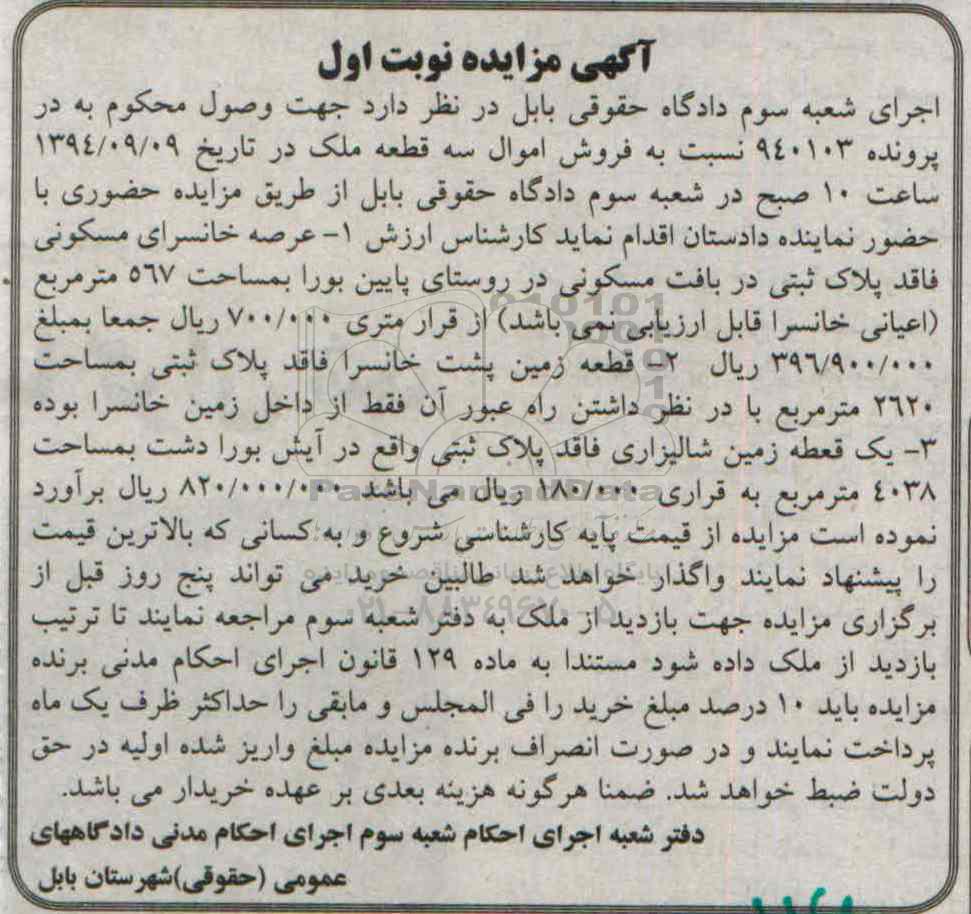 آگهی مزایده نوبت اول
اجرای شعبه سوم دادگاه حقوقی بابل در نظر دارد جهت وصول محکوم به در
پرونده ۹۴۰۱۰۳ نسبت به فروش اموال سه قطعه ملک در تاریخ ۱۳۹٤/۰۹/۰۹
ساعت ۱۰ صبح در شعبه سوم دادگاه حقوقی بابل از طریق مزایده حضوری با
حضور نماینده دادستان اقدام نماید کارشناس ارزش ۱- عرصه خانسرای مسکونی
فاقد پلاک ثبتی در بافت مسکونی در روستای پایین بورا بمساحت ٥٦٧ مترمربع
(اعیانی خانسرا قابل ارزیابی نمی باشد) از قرار متری ۷۰۰/۰۰۰ ریال جمعا بمبلغ
۳۹٦/۹۰۰/۰۰۰ ریال ۲- قطعه زمین پشت خانسرا فاقد پلاک ثبتی بمساحت
۲٦۲۰ مترمربع با در نظر داشتن راه عبور آن فقط از داخل زمین خانسرا بوده
۳- یک قعطه زمین شالیزاری فاقد پلاک ثبتی واقع در آیش بورا دشت بمساحت
٤۰۳۸ مترمربع به قراری ۱۸۰/۰۰۰ ریال می باشد ۸۲۰/۰۰۰/۰۰۰ ریال برآورد
نموده است مزایده از قیمت پایه کارشناسی شروع و به کسانی که بالاترین قیمت
را پیشنهاد نمایند واگذار خواهد شد طالبین خرید می تواند پنج روز قبل از
برگزاری مزایده جهت بازدید از ملک به دفتر شعبه سوم مراجعه نمایند تا ترتیب
بازدید از ملک داده شود مستندا به ماده ۱۲۹ قانون اجرای احکام مدنی برنده
مزایده باید ۱۰ درصد مبلغ خرید را فی المجلس و مابقی را حداکثر ظرف یک ماه
پرداخت نمایند و در صورت انصراف برنده مزایده مبلغ واریز شده اولیه در حق
دولت ضبط خواهد شد. ضمنا هرگونه هزینه بعدی بر عهده خریدار می باشد.
دفتر شعبه اجرای احکام شعبه سوم اجرای احکام مدنی دادگاههای
عمومی (حقوقی)شهرستان بابل
ParsNamadData
۰۲۱-۸۸۳٤۹٦۷۰-۵